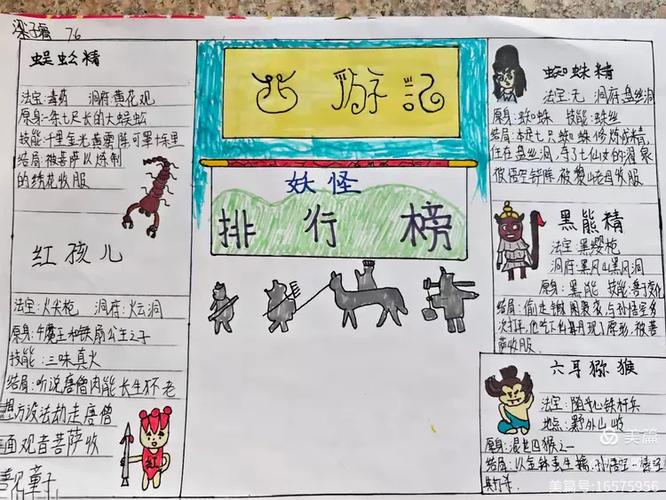 梁子 76
蜈蚣精
法宝:毒药 洞府:黄花观
原身:一条七尺长的大蜈蚣
技能:千里金光黄雾阵可罩十余里
结局:被菩萨以炼制
的绣花收服
红孩儿
法宝:火尖枪 洞府:火云洞
原身:牛魔王和铁扇公主之子
技能:三昧真火
结局:听说唐僧肉能长生不老
想方设法劫走唐僧
面观者菩萨收
善名童子
西游记
妖怪
排行榜
蜘蛛精
法宝:无 洞府:盘丝洞
原身:蜘蛛 技能:蛛丝
结局:本是七只蜘蛛修炼成精,
住在盘丝洞,夺了七仙女的濯泉
黑熊精
法宝:黑缨枪
洞府:黑风山黑风洞
原身:黑熊 技能:善于变化
结局:偷走锦襕袈裟,与孙悟空多
次打斗,
萨收服.
六耳猕猴
法宝:随心铁杆兵
地点:
原身:混世四猴之一
美篇
美篇号:16575956